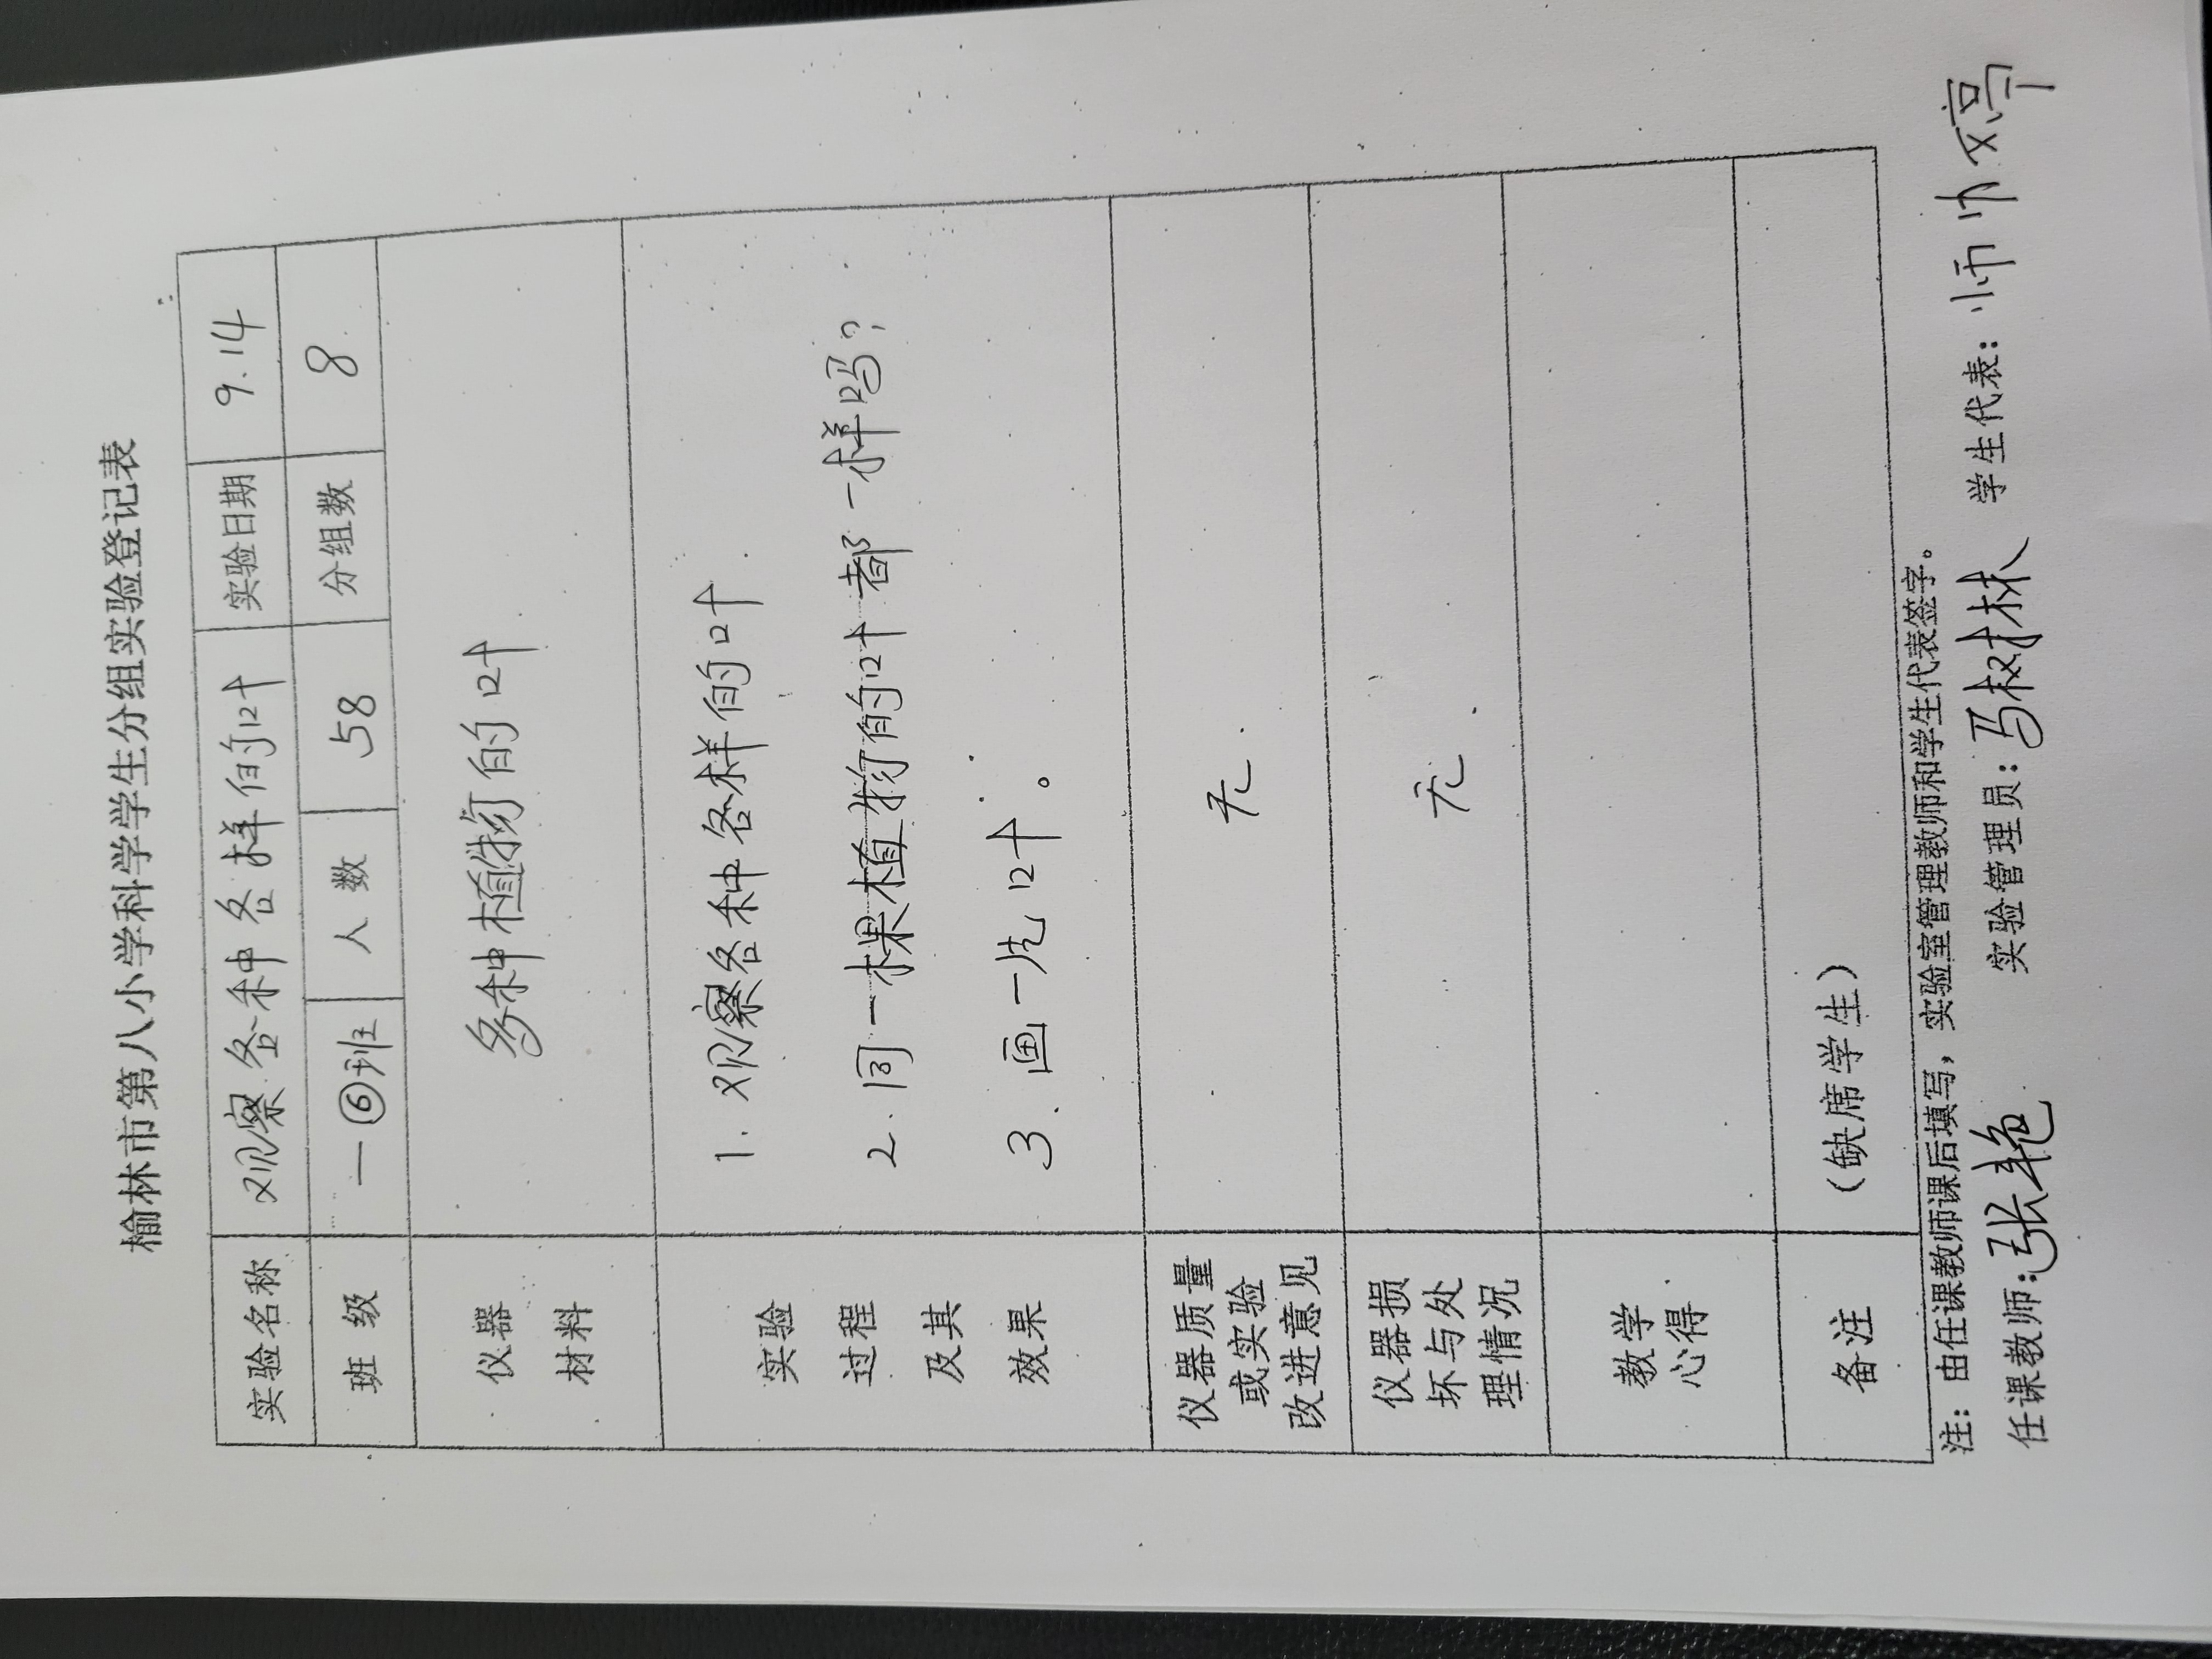 榆林市第八小学科学学生分组实验登记表
实验名称 观察各种各样的叶 实验日期 9.14
班级 一⑥班 人数 58 分组数 8
仪器
材料
多种植物的叶
实验
过程
及其
效果
1. 观察各种各样的叶.
2. 同一棵植物的叶都一样吗?
3. 画一片叶。
仪器质量
或实验
改进意见
无.
仪器损
坏与处
理情况
无.
教学
心得
备注 (缺席学生)
注：由任课教师课后填写，实验室管理教师和学生代表签字。
任课教师:张艳 实验管理员:马树林 学生代表:师帅婷